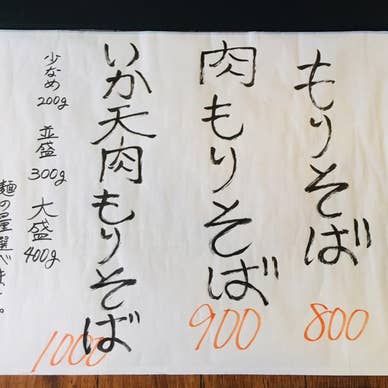 もりそば
800
肉もりそば
900
いか天肉もりそば
1000
少なめ 200g 並盛 300g 大盛 400g
麺の量選べます。